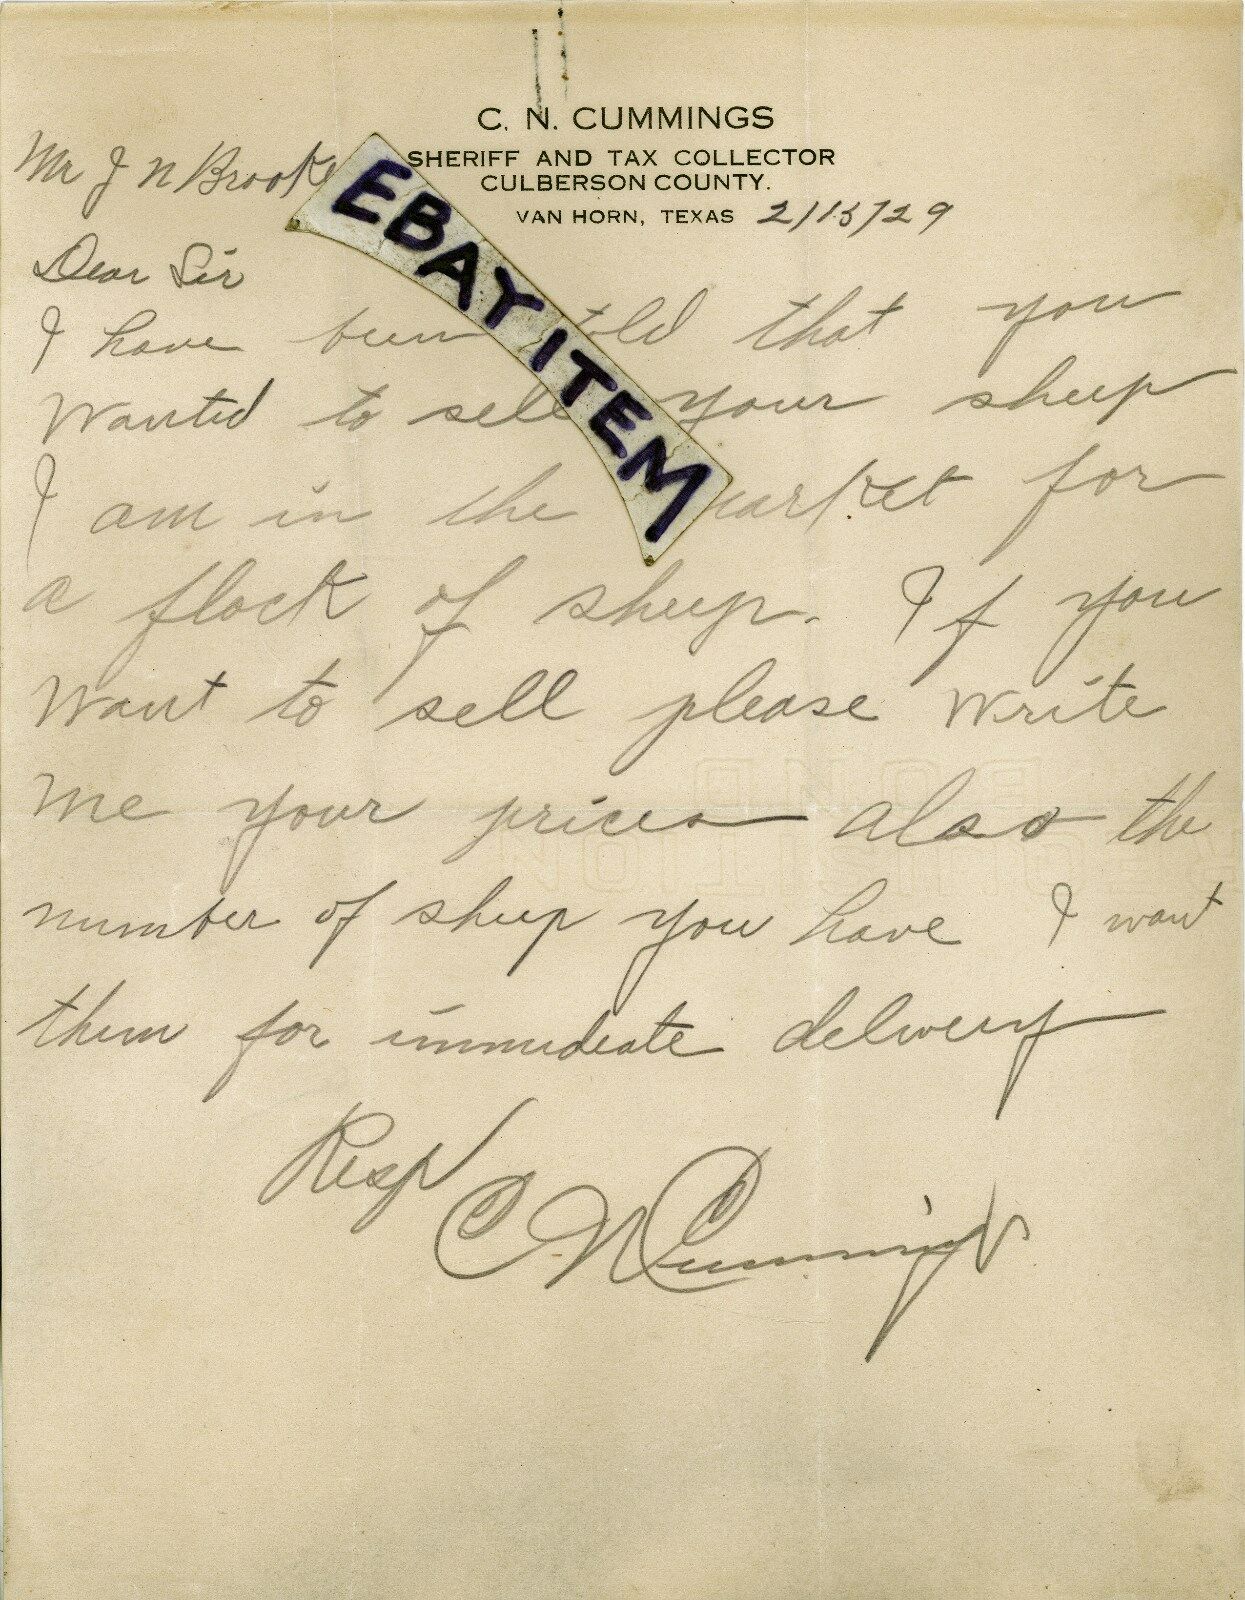 C. N. CUMMINGS
SHERIFF AND TAX COLLECTOR
CULBERSON COUNTY.
VAN HORN, TEXAS 2/13/29
Mr J N Brooke
EBAY ITEM
Dear Sir
I have been told that you
Wanted to sell your sheep
I am in the market for
a flock of sheep. If you
Want to sell please Write
Me your prices also the
number of sheep you have I want
them for immediate delivery
Resp
C N Cummings
BOND